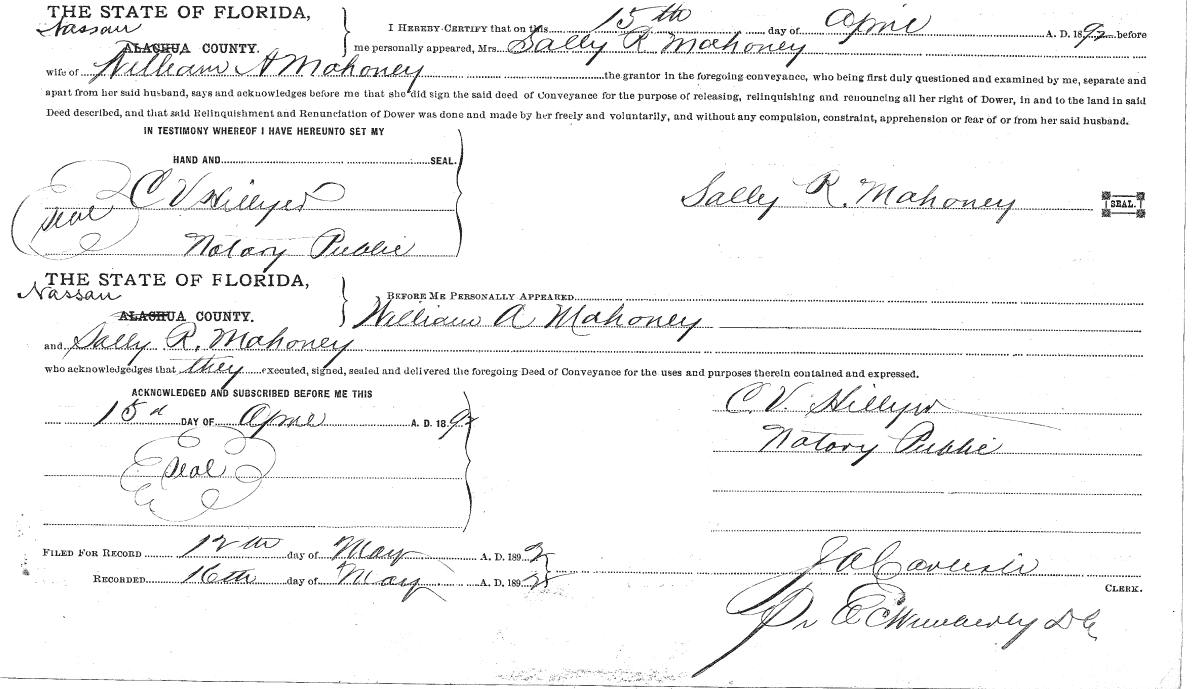 THE STATE OF FLORIDA,
Nassau
ALACHUA COUNTY.
I HEREBY CERTIFY that on this 15th day of April A. D. 1892 before
me personally appeared, Mrs. Sally R Mahoney
wife of William A Mahoney the grantor in the foregoing conveyance, who being first duly questioned and examined by me, separate and
apart from her said husband, says and acknowledges before me that she did sign the said deed of Conveyance for the purpose of releasing, relinquishing and renouncing all her right of Dower, in and to the land in said
Deed described, and that said Relinquishment and Renunciation of Dower was done and made by her freely and voluntarily, and without any compulsion, constraint, apprehension or fear of or from her said husband.
IN TESTIMONY WHEREOF I HAVE HEREUNTO SET MY
HAND AND SEAL.
C V Hillyer
Seal
Notary Public
Sally R. Mahoney SEAL.
THE STATE OF FLORIDA,
Nassau
ALACHUA COUNTY.
BEFORE ME PERSONALLY APPEARED
William A Mahoney
and Sally R. Mahoney
who acknowledgedges that they executed, signed, sealed and delivered the foregoing Deed of Conveyance for the uses and purposes therein contained and expressed.
ACKNOWLEDGED AND SUBSCRIBED BEFORE ME THIS
15 DAY OF April A. D. 1892
Seal
C. V. Hillyer
Notary Public
FILED FOR RECORD 12th day of May A. D. 1892
RECORDED 16th day of May A. D. 1892
J A Carlisle
CLERK.
Pr E C Wimberly D C